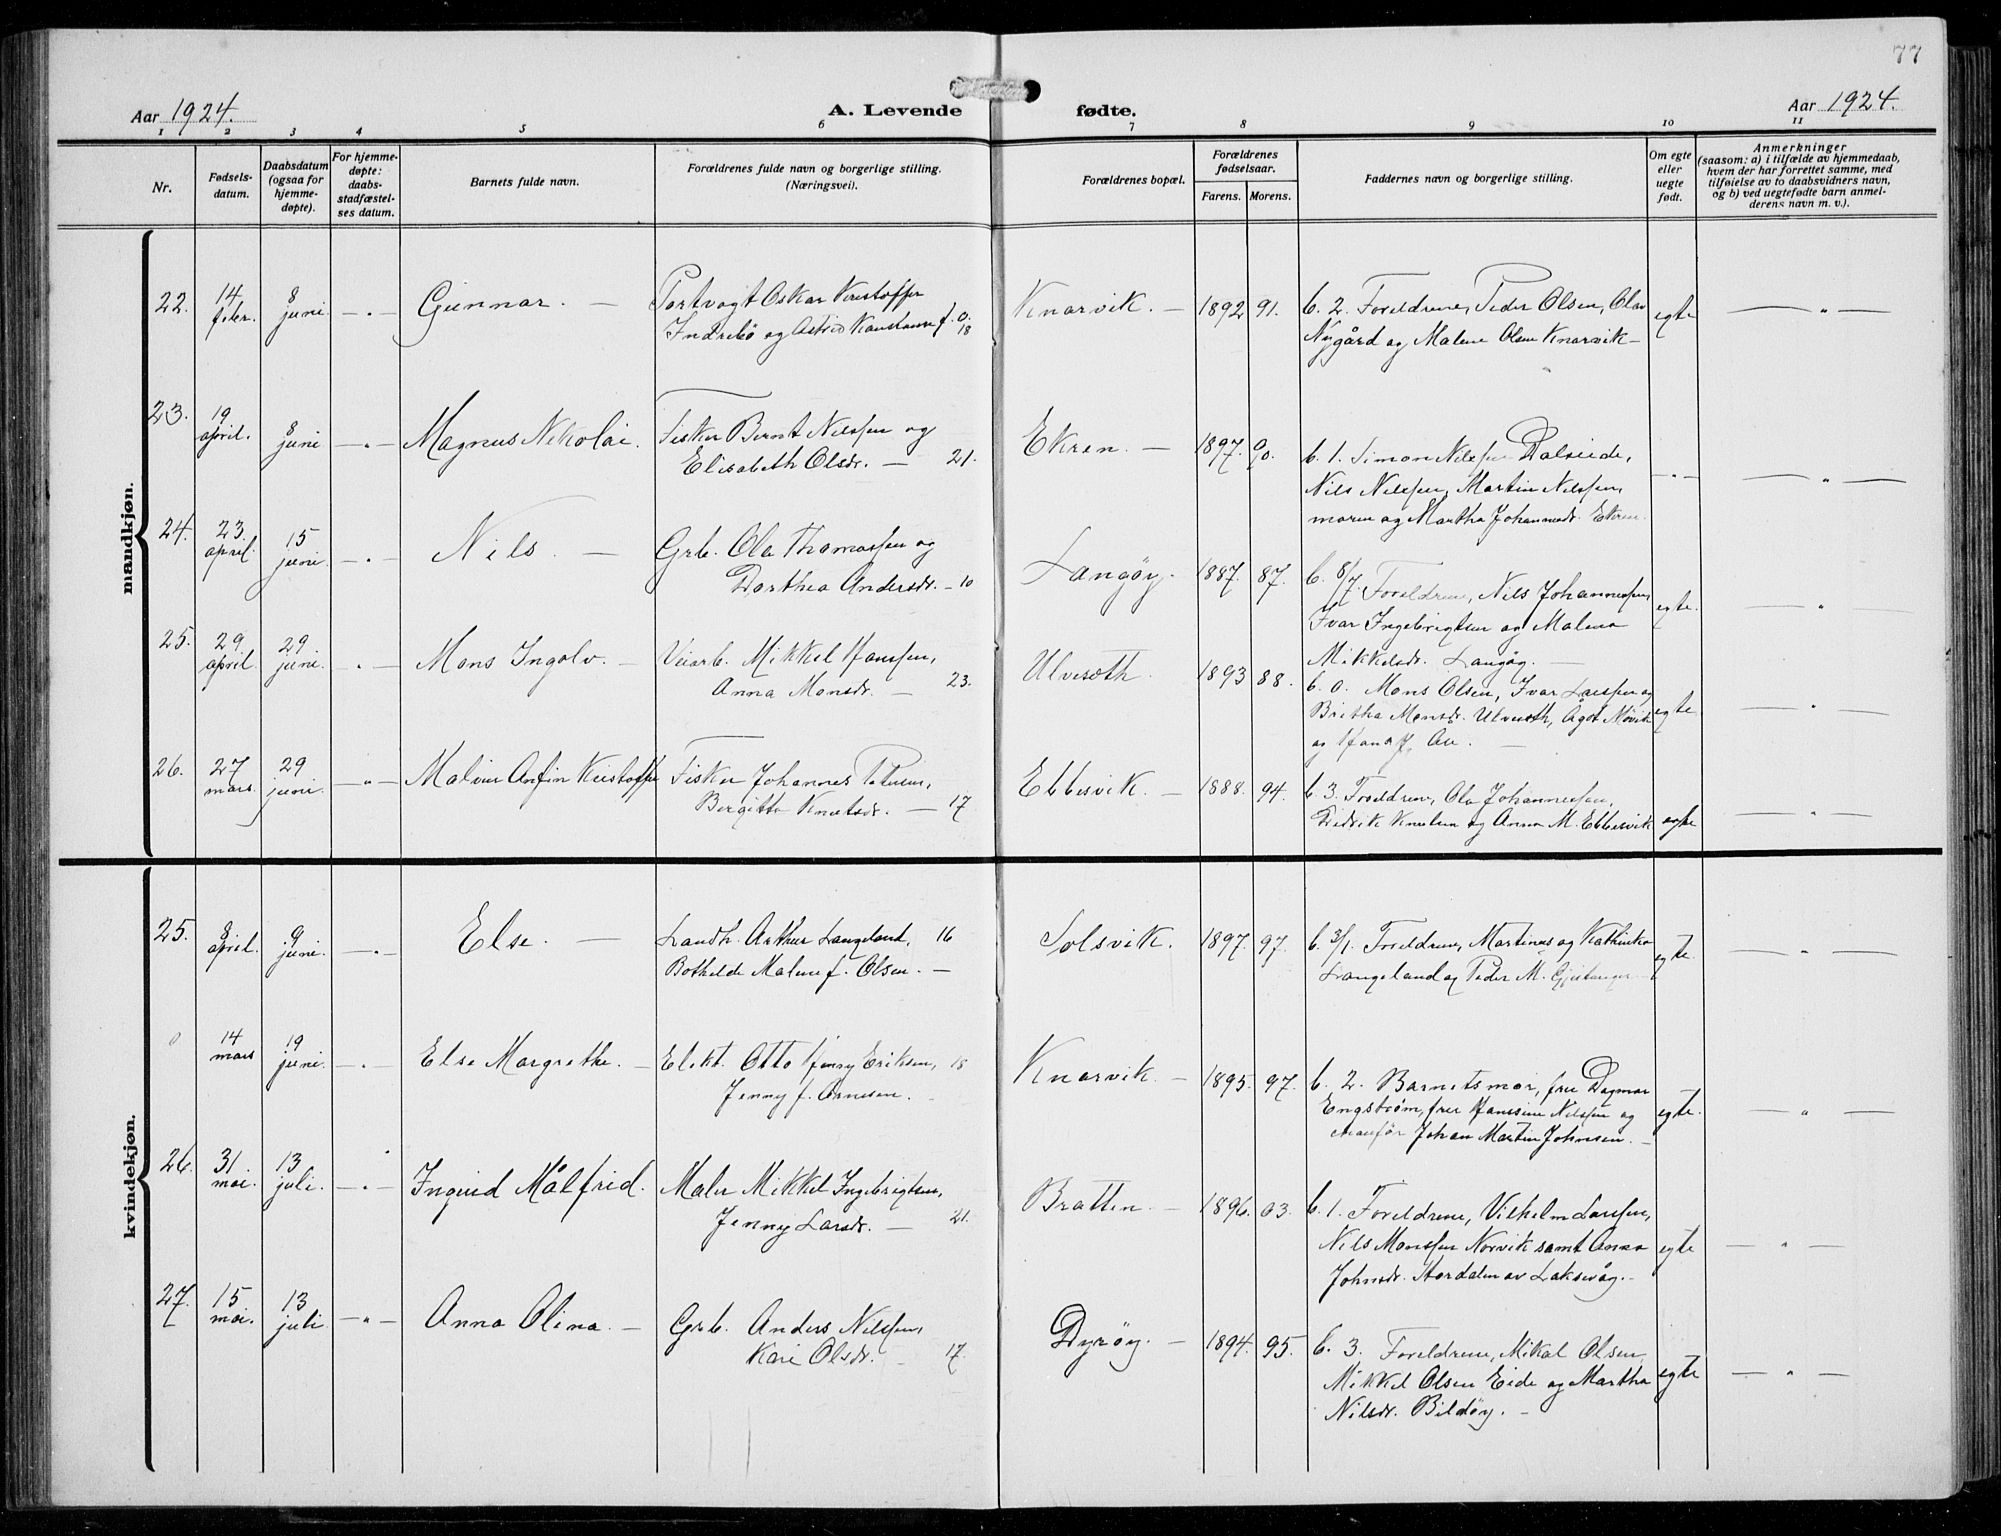 77
Aar 1924.
A. Levende fødte.
Aar 1924.
1 2 3 4 5 6 7 8 9 10 11
Nr.
Fødsels-
datum.
Daabsdatum
(ogsaa for
hjemme-
døpte).
For hjemme-
døpte:
daabs-
stadfæstel-
ses datum.
Barnets fulde navn.
Forældrenes fulde navn og borgerlige stilling.
(Næringsvei).
Forældrenes bopæl.
Forældrenes
fødselsaar.
Farens. Morens.
Faddernes navn og borgerlige stilling.
Om egte
eller
uegte
født.
Anmerkninger
(saasom: a) i tilfælde av hjemmedaab,
hvem der har forrettet samme, med
tilføielse av to daabsvidners navn,
og b) ved uegtefødte barn anmel-
derens navn m. v.).
mandkjøn.
22. 14 febr. 8 juni — " — Gunnar. —
Portvagt Oskar Kristoffer
Indrebö og Astrid Konstanse f. O. 18
Knarvik. — 1892 91.
b. 2. Foreldrene, Peder Olsen, Olav
Nygård og Malene Olsen Knarvik —
egte — " —
23. 19 april. 8 juni — " — Magnus Nikolai.
Fisker Bernt Nilssen og
Elisabeth Olsdr. — 21.
Ekren. — 1897. 90.
b. 1. Simon Nilssen Dalseide,
Nils Nilssen, Martin Nilssen,
moren og Martha Johannesdr. Ekren.
— " — — " —
24. 23. april. 15 juni — " — Nils. —
Grb. Ola Thomassen og
Dorthea Andersdr. — 10
Langöy. 1887. 87.
b. 8/7. Foreldrene, Nils Johannessen,
Ivar Ingebrigtsen og Malena
Mikkelsdr. Langöy. —
egte. — " —
25. 29. april 29 juni. — " — Mons Ingolv. —
Veiarb. Mikkel Hanssen,
Anna Monsdr. — 23.
Ulveseth. 1893 88.
b. 0. Mons Olsen, Ivar Larssen og
Britha Monsdr. Ulveseth, Ågot Növik
og Hans J. —
egte — " —
26. 27 mars. 29 juni. — " — Malvin Anfin Kristoffer
Fisker Johannes Petersen,
Bergitta Knutsdr. — 17.
Ebbesvik. — 1888. 94.
b. 3. Foreldrene, Ola Johannessen,
Didrik Knutsen og Anna M. Ebbesvik
egte — " —
kvindekjøn.
25. 8 april. 9 juni — " — Else. —
Landh. Arthur Langeland, 16
Bothilde Malene f. Olsen. —
Solsvik. 1897. 97.
b. 3/1. Foreldrene, Martines og Kathinka
Langeland og Peder M.
egte. — " —
0 14 mars 19 juni. — " — Else Margrethe. —
Elekt. Otto Henry Eriksen, 18
Jenny f. Arnesen.
Knarvik. — 1895. 97.
b. 2. Barnets mor, fru Dagmar
Engström, fru Hanssine Nilssen og
Johan Martin Johnsen. —
egte. — " —
26. 31 mai. 13 juli. — " — Ingrid Målfrid.
Maler Mikkel Ingebrigtsen,
Jenny Larsdr. — 21.
Bratten. — 1896. 03.
b. 1. Foreldrene, Vilhelm Larssen,
Nils Monssen Norvik samt Anna
Johnsdr. Stordalen av Laksevåg. —
egte — " —
27. 15 mai. 13 juli — " — Anna Olina. —
Grb. Anders Nilssen,
Kari Olsdr. — 17.
Dyröy. — 1894. 95.
b. 3. Foreldrene, Mikal Olsen,
Mikkel Olsen Eide og Martha
Nilsdr. Bildöy. —
egte — " —